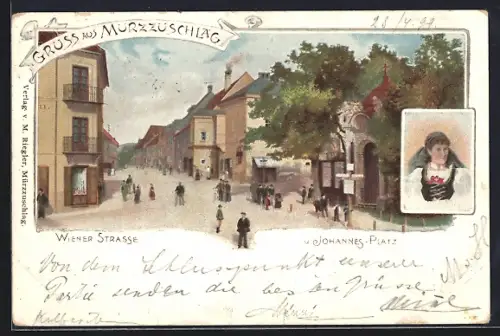 23/4.99.
GRUSS AUS MÜRZZUSCHLAG
Verlag v. M. Riegler, Mürzzuschlag.
WIENER STRASSE
U. JOHANNES-PLATZ
Von dem Schlusspunkt unserer
Partie senden die besten Grüsse